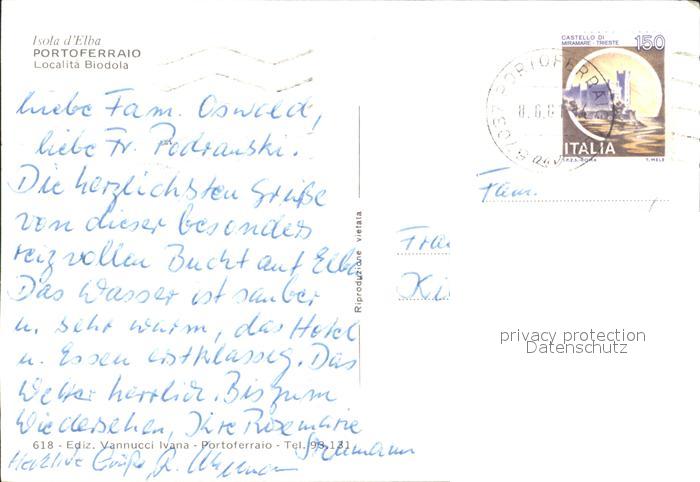 Isola d'Elba
PORTOFERRAIO
Località Biodola
CASTELLO DI
MIRAMARE - TRIESTE
150
ITALIA
I.P.Z.S. - ROMA T. MELE
PORTOFERRA
8.6.8
liebe Fam. Oswald,
liebe Fr. Podranski.
Die herzlichsten Grüße
von dieser besonders
reizvollen Bucht auf Elba
Das Wasser ist sauber
u. sehr warm, das Hotel
u. Essen erstklassig. Das
Wetter herrlich. Bis zum
Wiedersehen, Ihre Rosemarie
Herzliche Grüße, R.
Fam.
Frau
Ki
Riproduzione vietata
privacy protection
Datenschutz
618 - Ediz. Vannucci Ivana - Portoferraio - Tel. 93.131